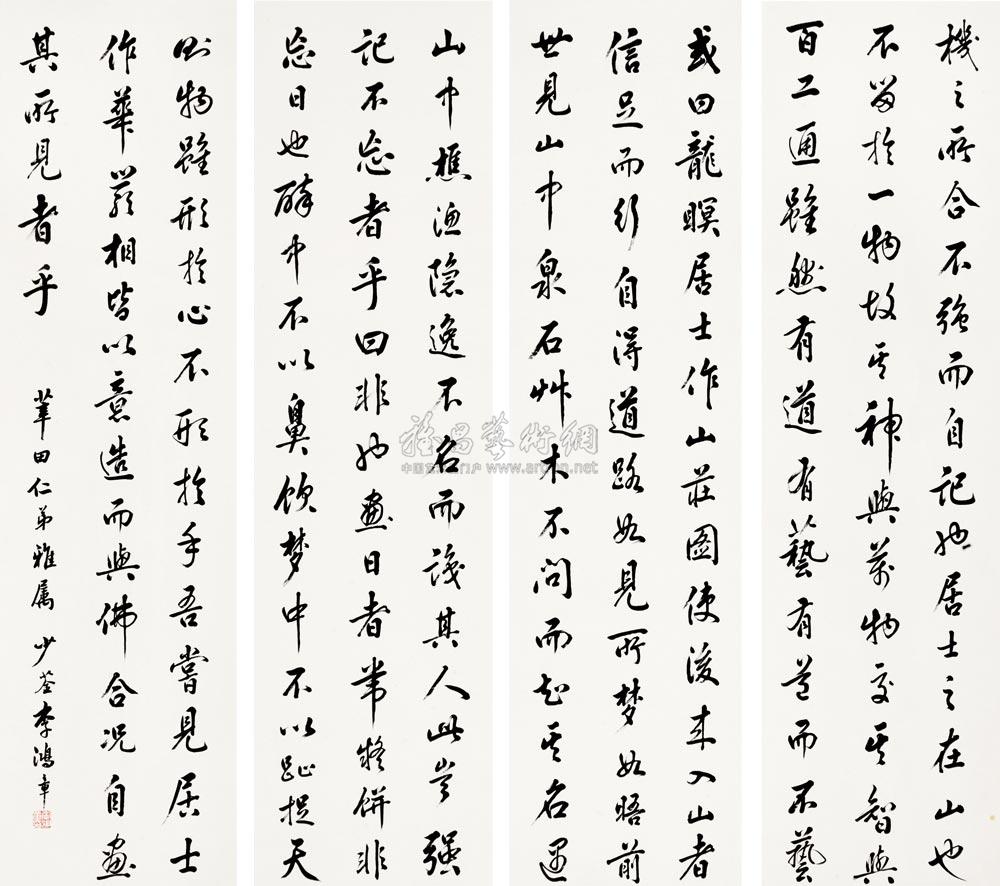 機之所合不強而自記也居士之在山也
不留於一物故其神與萬物交其智與
百工通雖然有道有藝有道而不藝
或曰龍瞑居士作山莊圖使後來入山者
信足而行自得道路如見所梦如晤前
世見山中泉石艸木不問而知其名遇
山中樵漁隱逸不名而識其人此豈強
記不忘者乎曰非也畫日者常疑餅非
忘日也醉中不以鼻飲梦中不以趾捉天
則物雖形於心不形於手吾嘗見居士
作華嚴相皆以意造而與佛合況自畫
其所見者乎
華田仁弟雅屬 少荃李鴻章
雅昌藝術網
www.artron.net